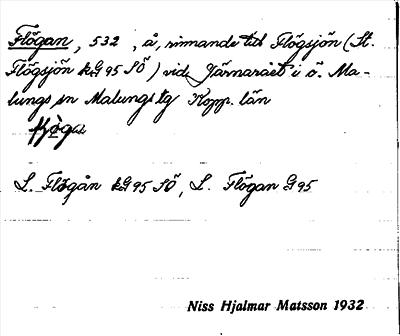 Flögan, 532, å, rinnande till Flögsjön (St.
Flögsjön kG 95 SÖ) vid Järnaråset i ö. Ma-
lungs sn Malungs tg Kopp. län
fɫøga
L. Flögån kG 95 SÖ, L. Flögan G 95
Niss Hjalmar Matsson 1932